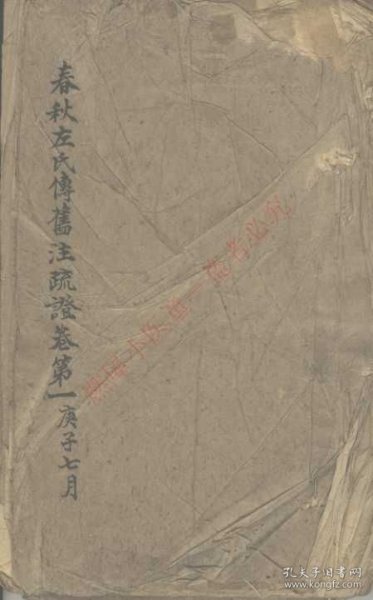 春秋左氏傳舊注疏證卷第一庚子七月
孔夫子旧书网